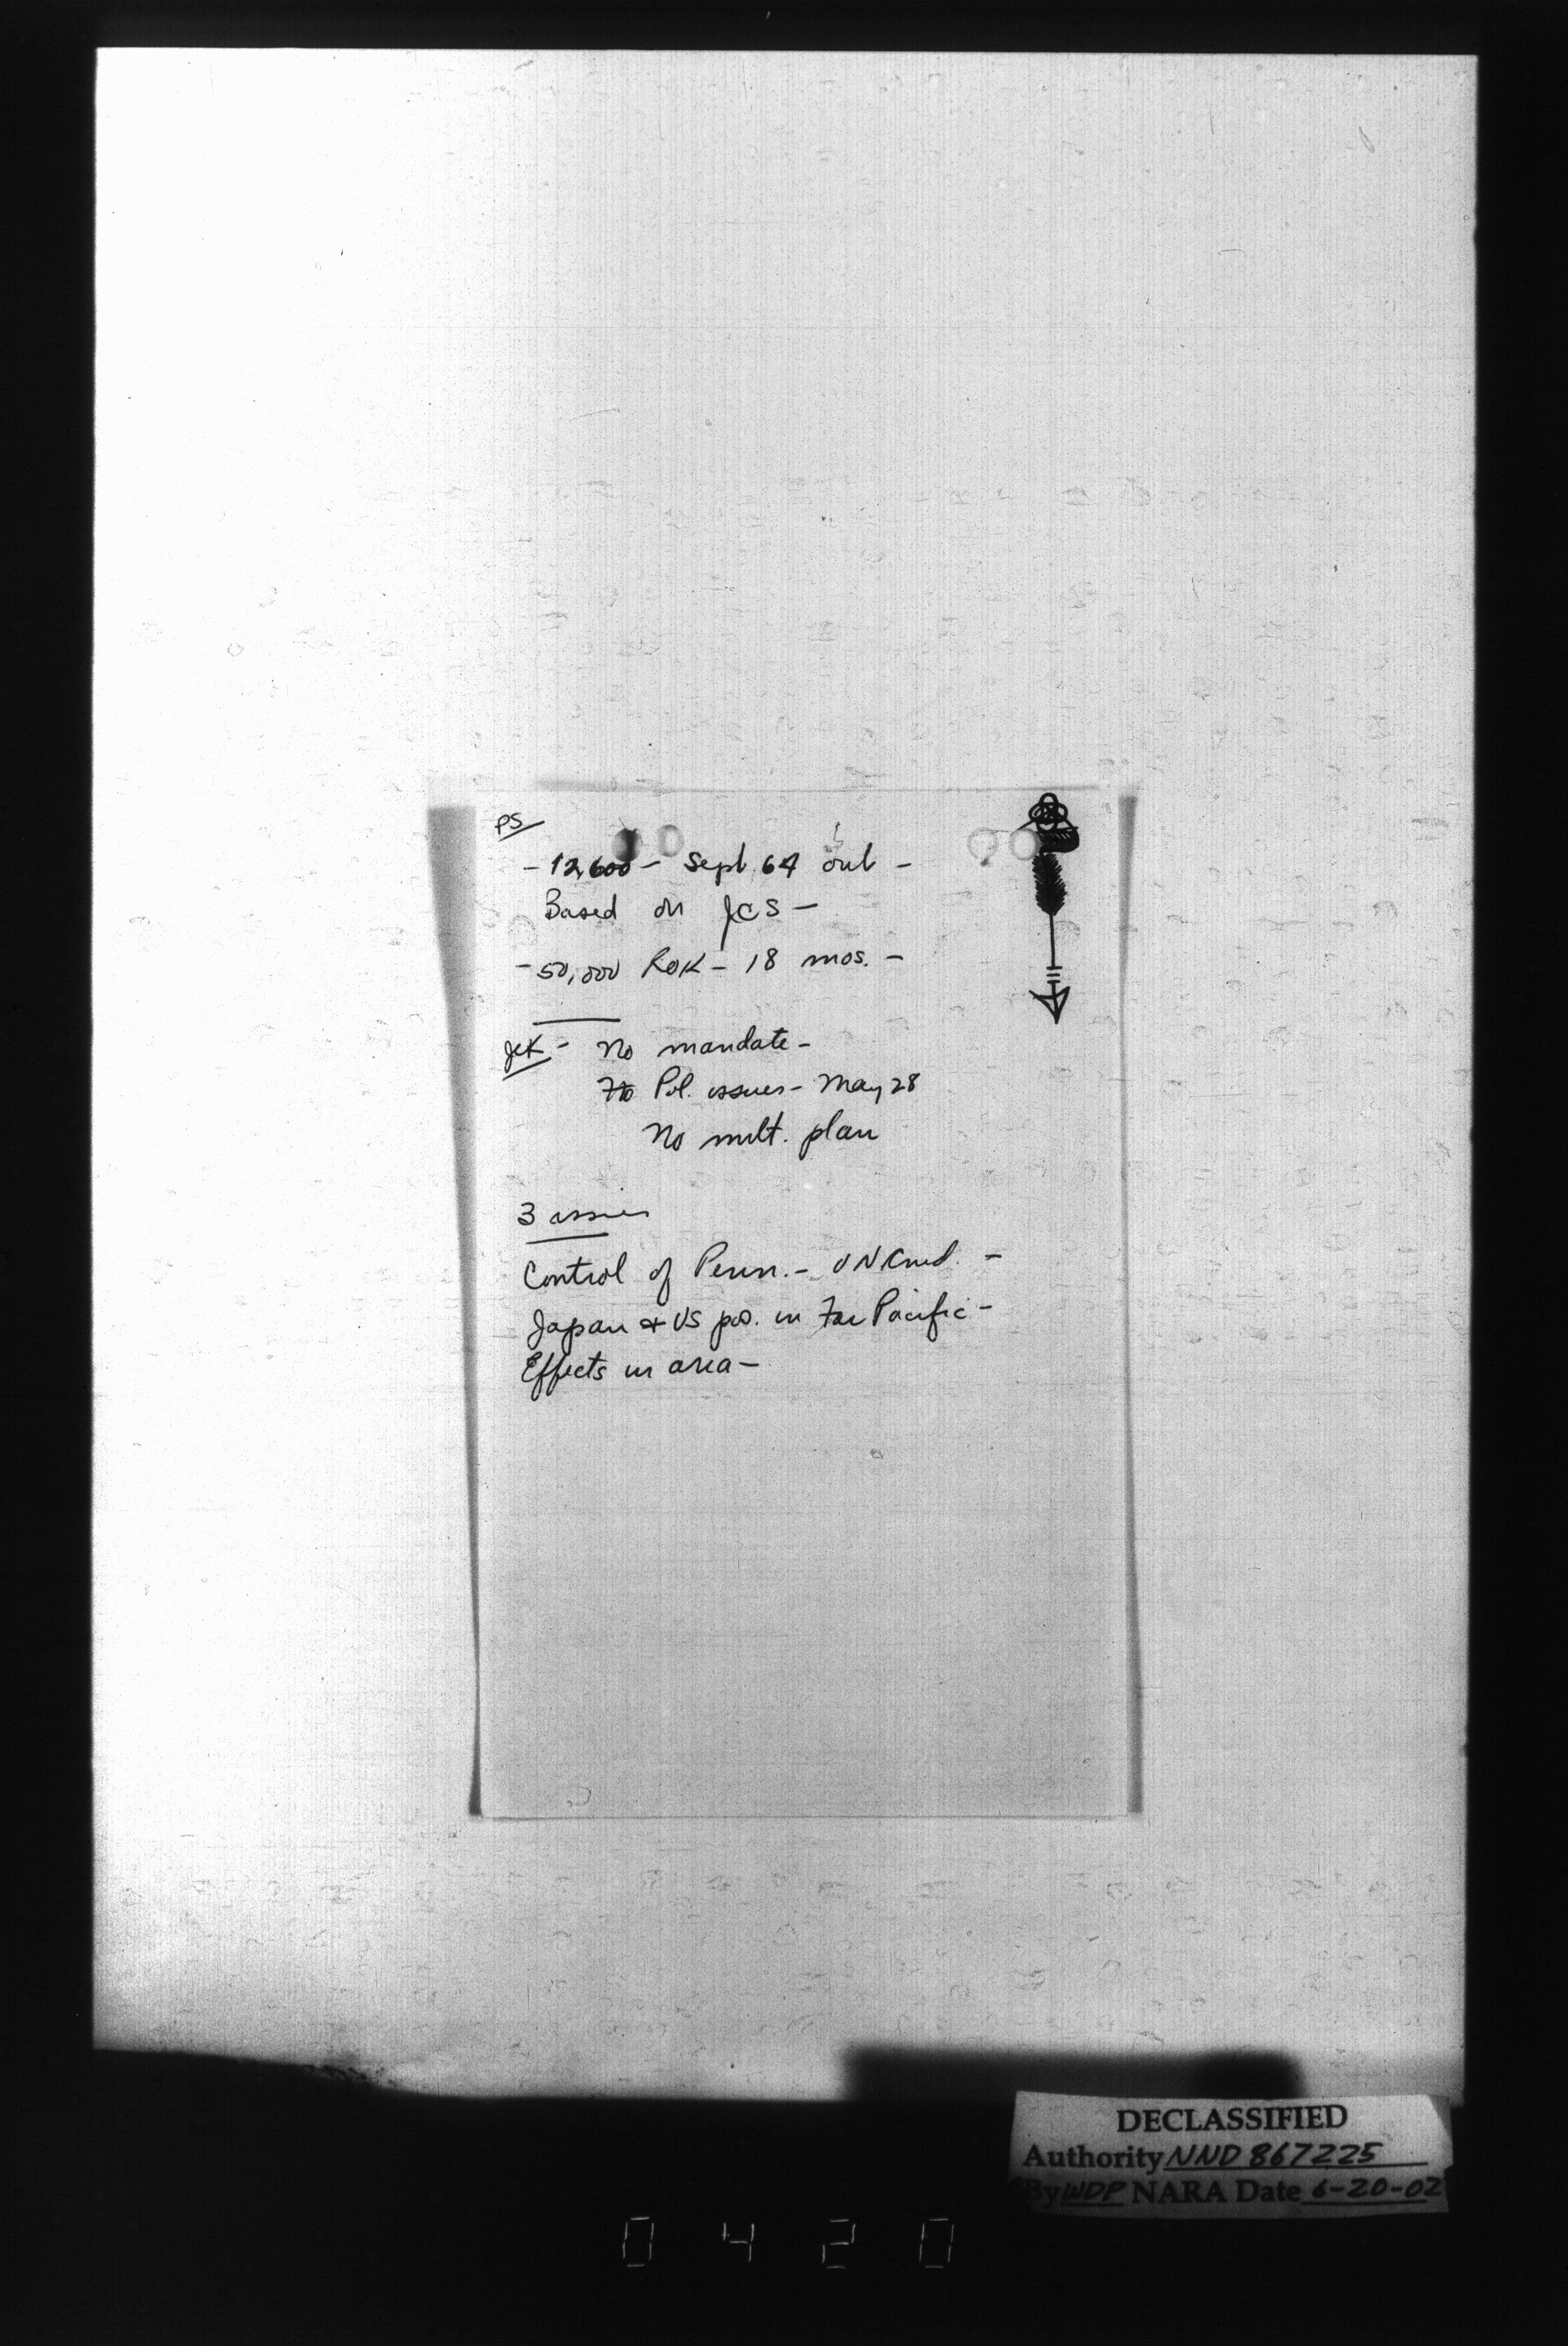 PS
- 12,600 - Sept 64 out -
Based on JCS -
- 50,000 ROK - 18 mos. -
- No mandate -
Pol. issues - May 28
No milt. plan
3 issues
Control of Penn. - UN Cmd. -
Japan + US pos. in Far Pacific -
Effects in area -
DECLASSIFIED
Authority NND 867225
By WDP NARA Date 6-20-02
0420